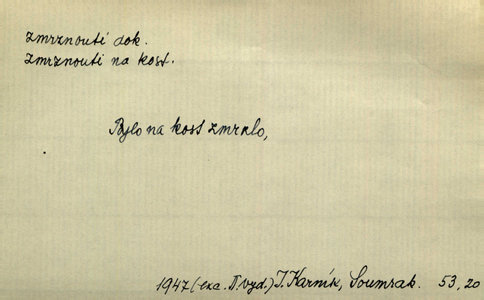 zmrznouti dok.
Zmrznouti na kost.
Bylo na kost zmrzlo,
1947 (exa. II. vyd.) J. Karník, Soumrak. 53, 20